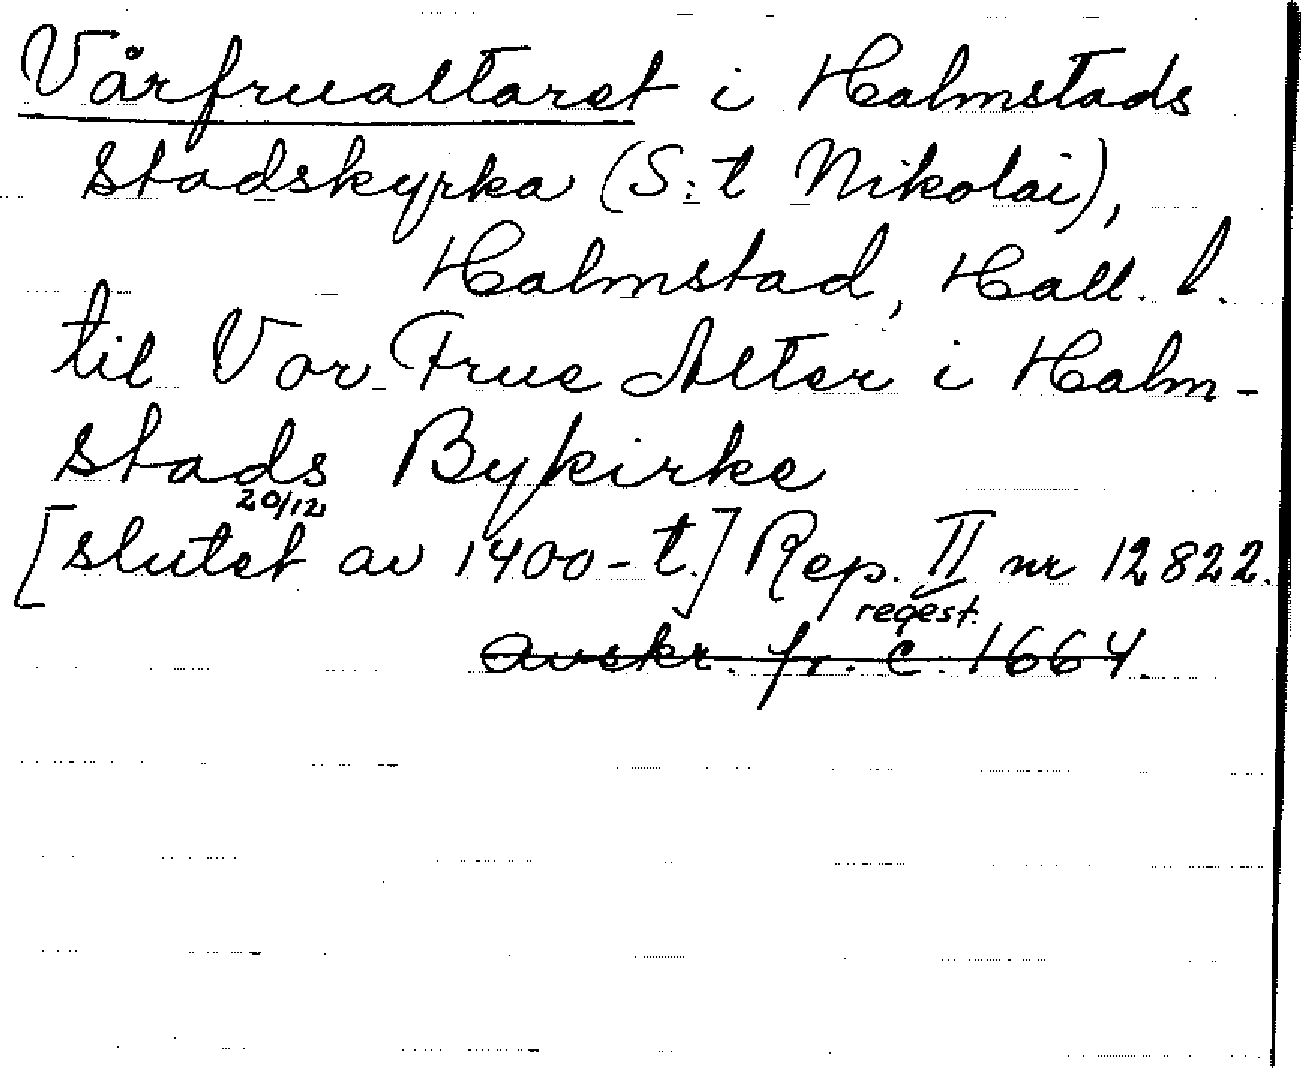 Vårfrualtaret i Halmstads
stadskyrka (S:t Nikolai),
Halmstad, Hall. l.
til Vor Frue Alter i Halm-
stads Bykirke
20/12
[slutet av 1400-t.] Rep. II nr 12822.
regest.
avskr. fr. c. 1664.